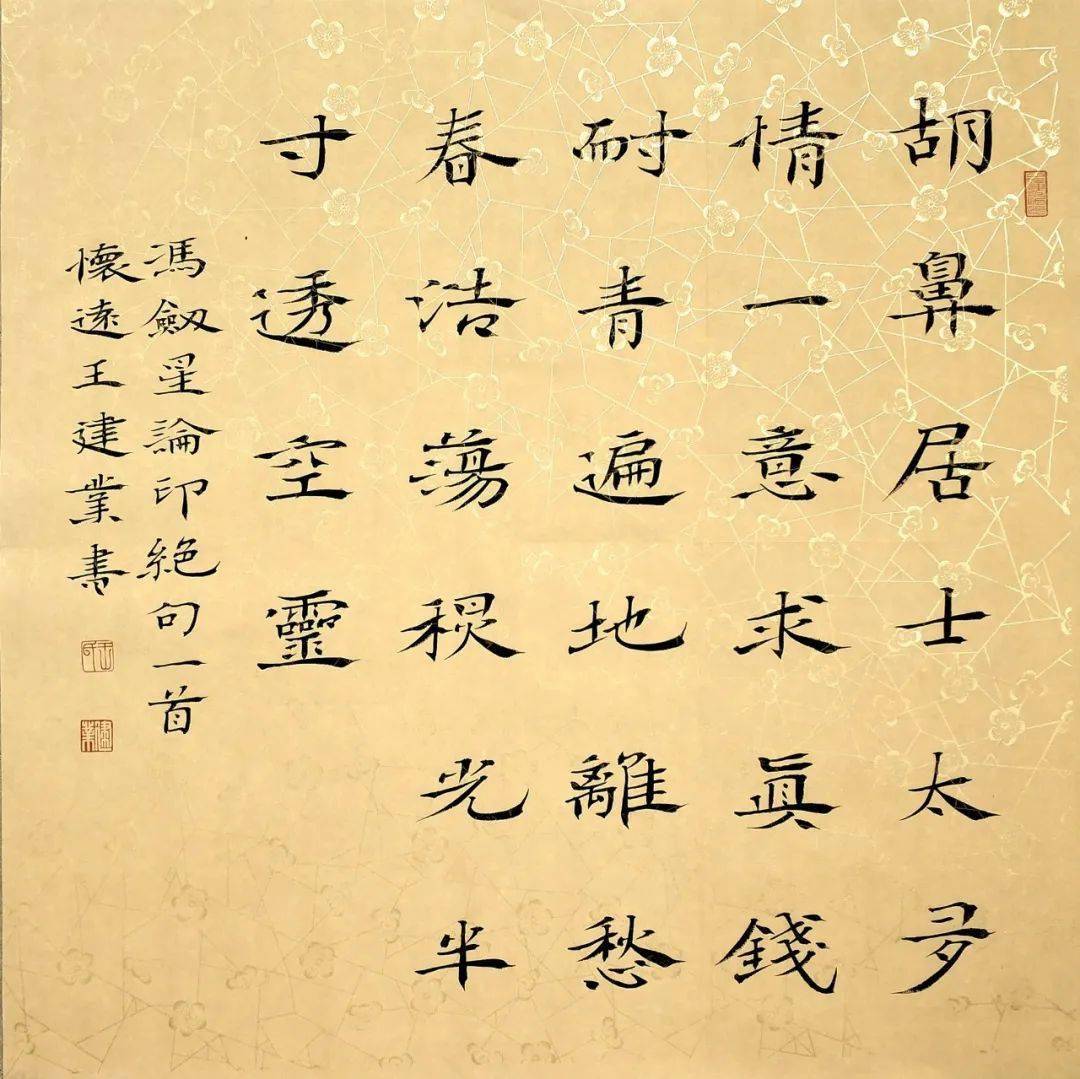 胡鼻居士太夛
情一意求眞錢
耐青遍地離愁
春浩蕩光半
寸透空靈
馮劔星論印絕句一首
懷遠王建業書
建業